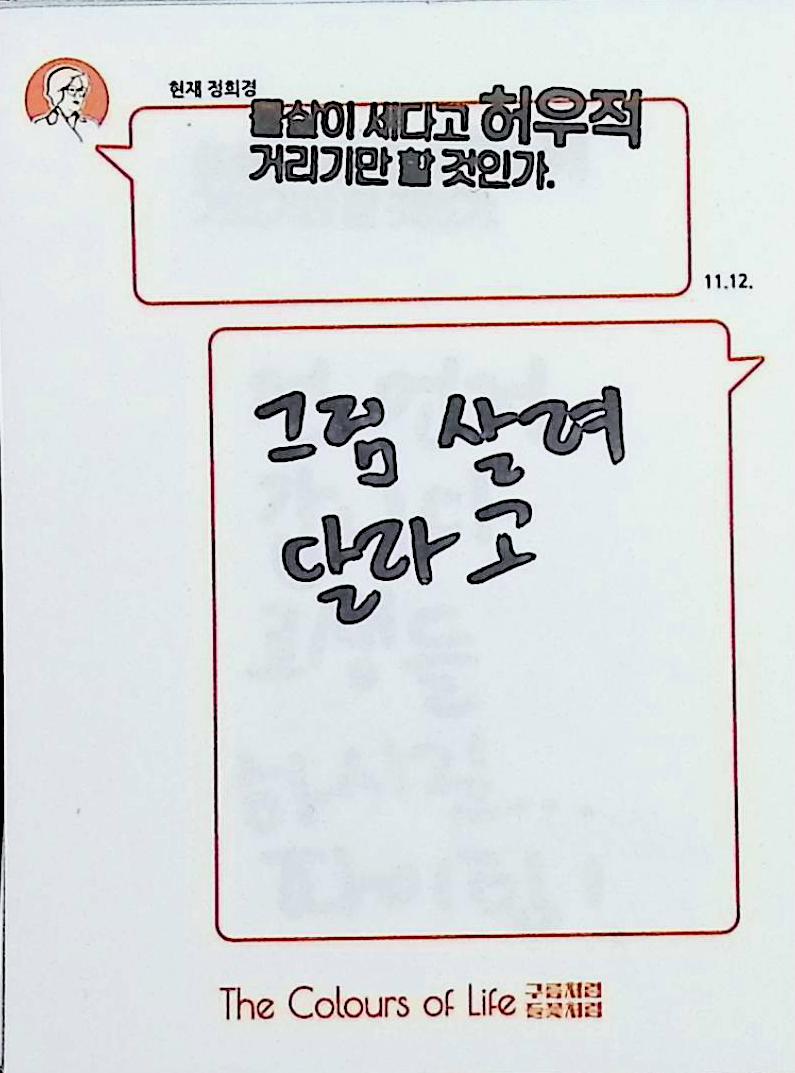 현재 정희경
물살이 세다고 허우적
거리기만 할 것인가.
11.12.
그럼 살려
달라고
The Colours of Life 구름처럼
들꽃처럼